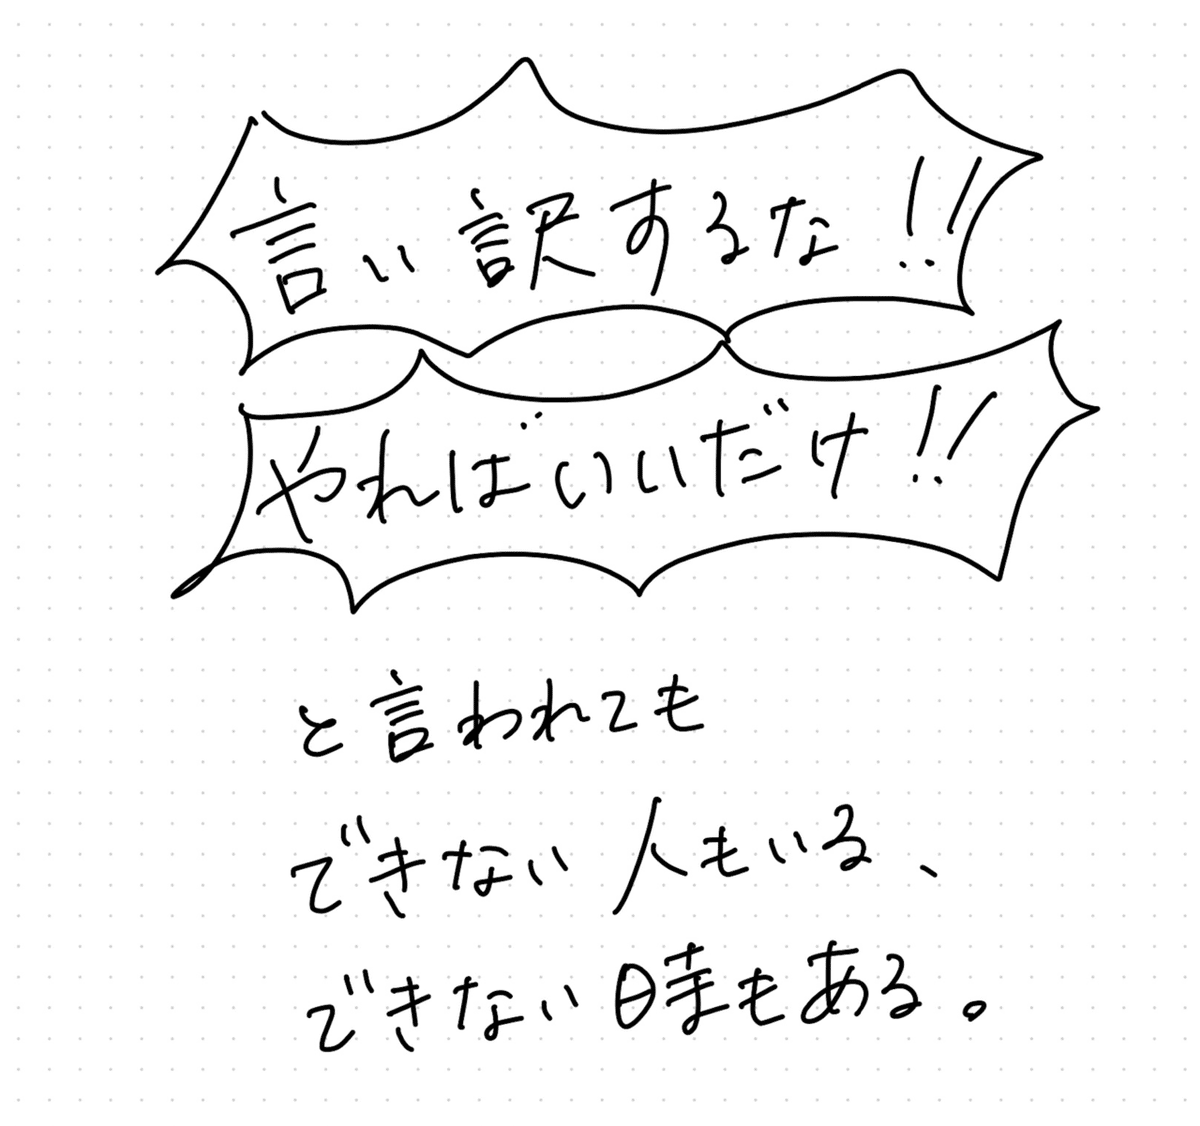 言い訳するな!!
やればいいだけ!!
と言われても
できない人もいる、
できない時もある。